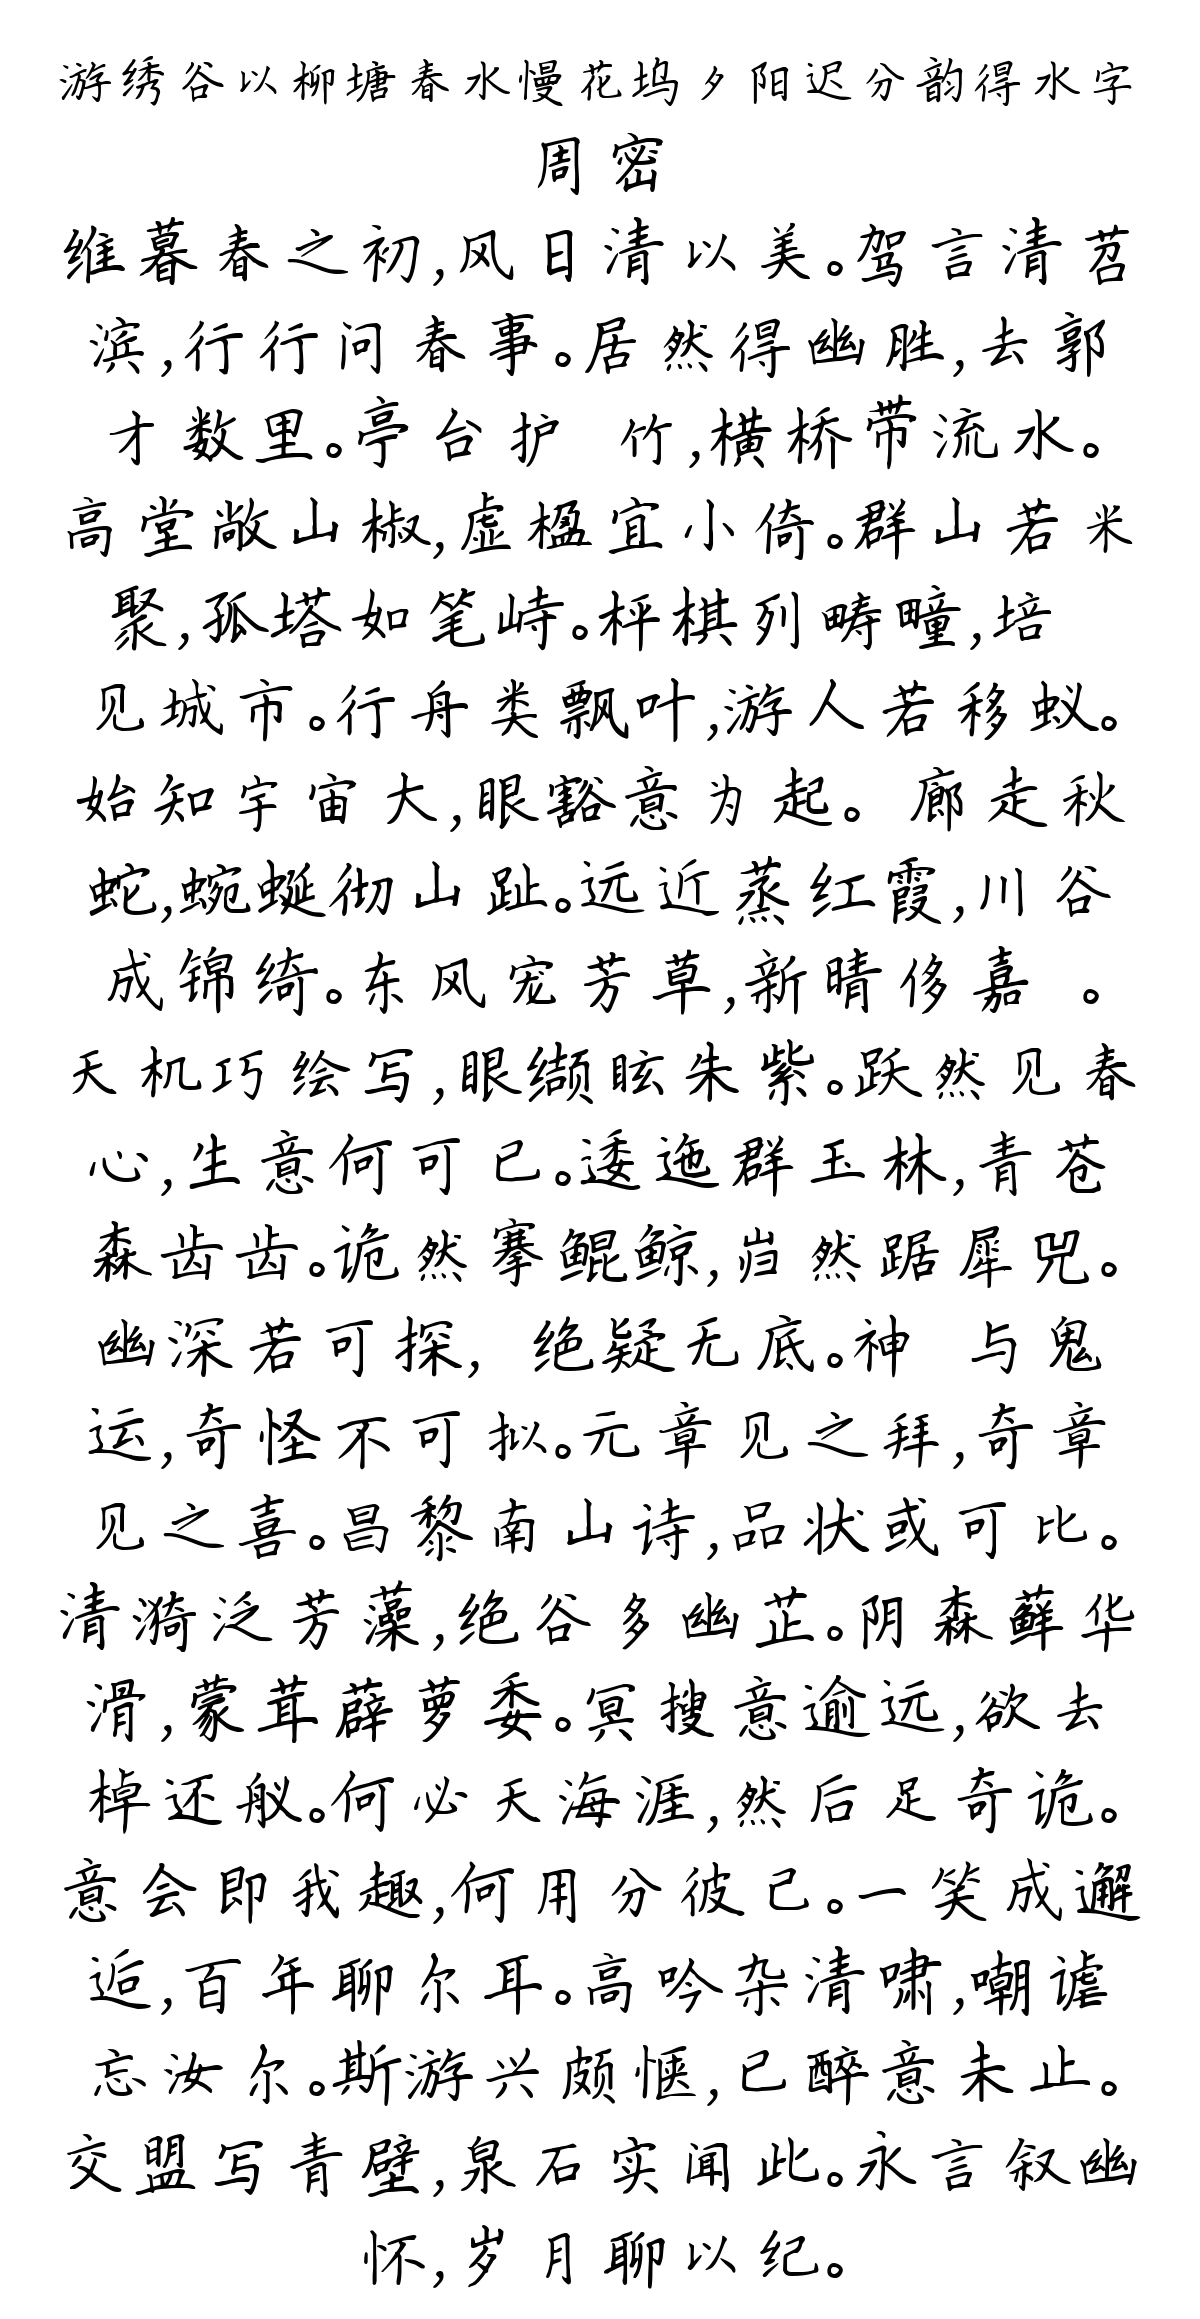 游绣谷以柳塘春水慢花坞夕阳迟分韵得水字
周密
维暮春之初,风日清以美。驾言清苕
滨,行行问春事。居然得幽胜,去郭
才数里。亭台护 竹,横桥带流水。
高堂敞山椒,虚楹宜小倚。群山若米
聚,孤塔如笔峙。枰棋列畴疃,培
见城市。行舟类飘叶,游人若移蚁。
始知宇宙大,眼豁意为起。 廊走秋
蛇,蜿蜒彻山趾。远近蒸红霞,川谷
成锦绮。东风宠芳草,新晴侈嘉 。
天机巧绘写,眼缬眩朱紫。跃然见春
心,生意何可已。逶迤群玉林,青苍
森齿齿。诡然搴鲲鲸,岿然踞犀兕。
幽深若可探, 绝疑无底。神 与鬼
运,奇怪不可拟。元章见之拜,奇章
见之喜。昌黎南山诗,品状或可比。
清漪泛芳藻,绝谷多幽芷。阴森藓华
滑,蒙茸薜萝委。冥搜意逾远,欲去
棹还舣。何必天海涯,然后足奇诡。
意会即我趣,何用分彼己。一笑成邂
逅,百年聊尔耳。高吟杂清啸,嘲谑
忘汝尔。斯游兴颇惬,已醉意未止。
交盟写青壁,泉石实闻此。永言叙幽
怀,岁月聊以纪。